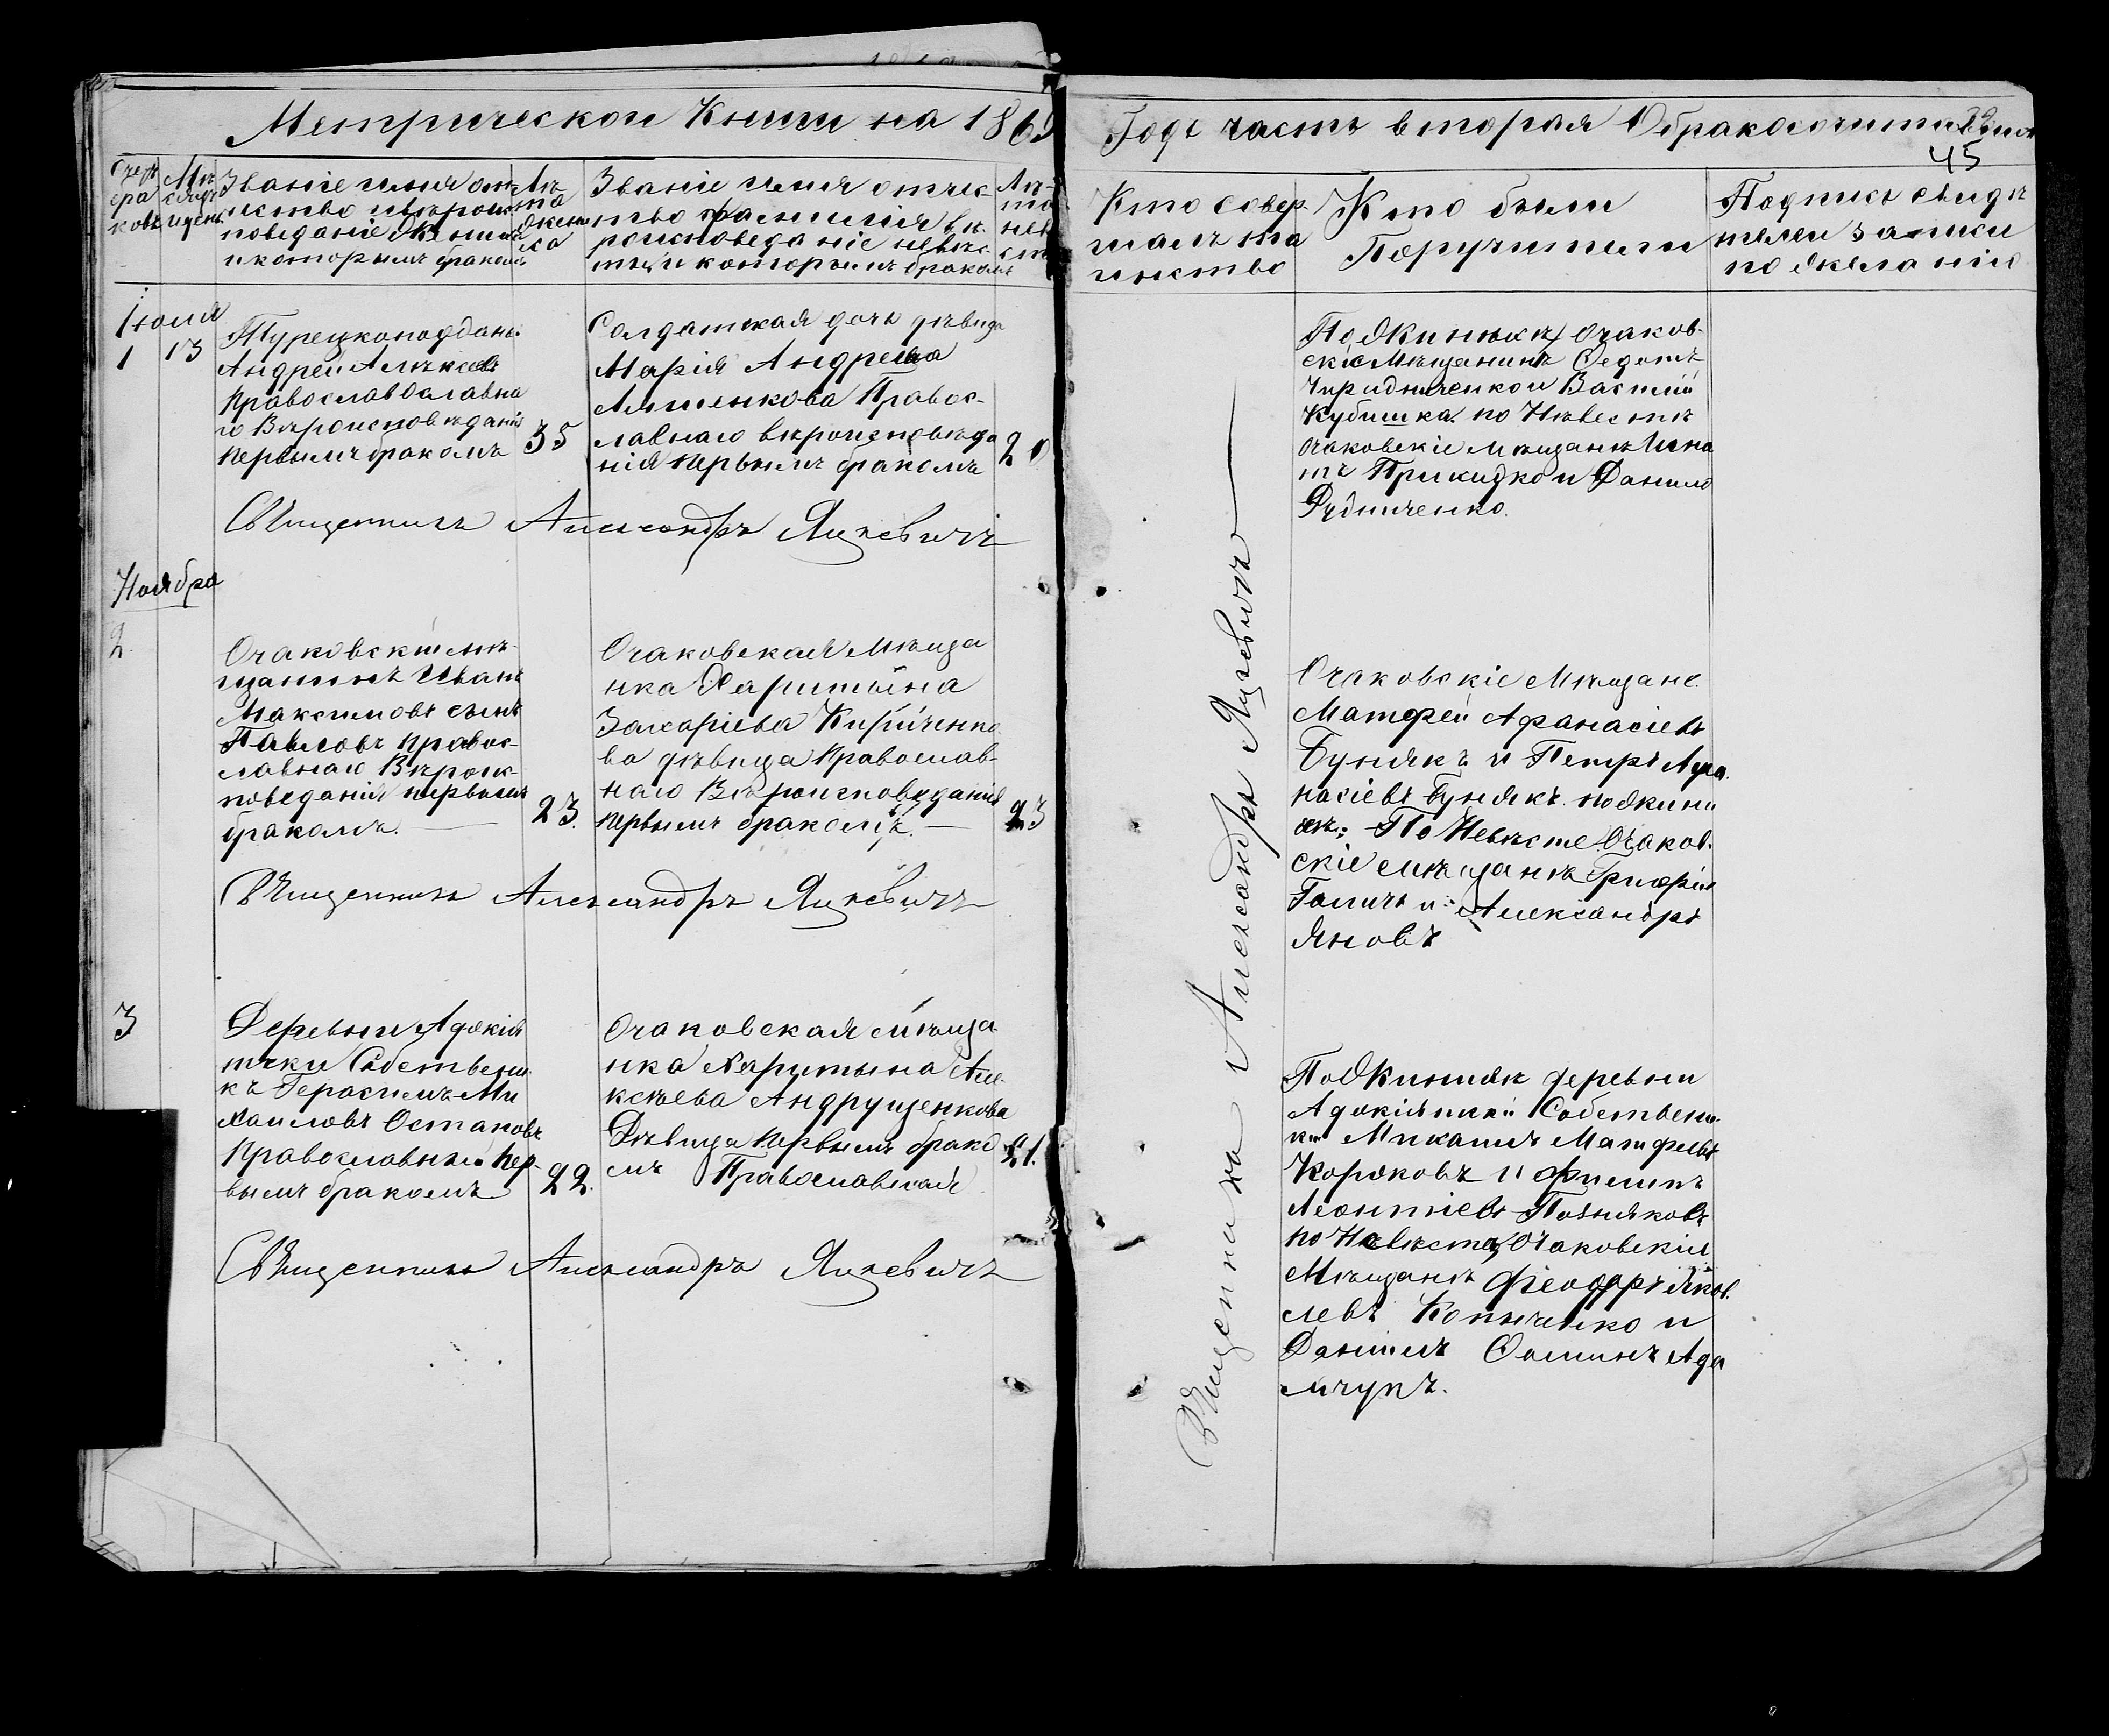 Метрической Книги на 1869
Годъ часть вторая О бракосочитавшихся
45
Счетъ браковъ
Мѣсяцъ и день
Званіе имя отчество и вѣроисповеданіе Жениха и которымъ бракомъ
Лѣта жениха
Званіе имя отчество фамилія вѣроисповеданіе невѣсты и которымъ бракомъ
Лѣта невѣсты
Кто совер
шалъ та
инство
Кто были
Поручители
Подпись свидѣ
телей записи
по желанію
Іюля
1
13
Турецкоподдан.
Андрей Алѣксеевъ
Православославна
го Вѣроисповѣданія
первымъ бракомъ
35
Солдатская дочь дѣвица
Марія Андреева
Ляшенкова Правос-
лавнаго вѣроисповѣда
нія первымъ бракомъ
20
По Жинихѣ Очаков-
скіе Мѣщанинъ Федотъ
Чиридниченко и Василій
Кубишка по Нѣвестѣ
Очаковскіе мѣщанѣ Игна
тъ Прикидко и Данило
Дудниченко.
Священникъ Александръ Яцкевичъ
Ноября
2
Очаковскій мѣ-
щанинъ Иванъ
Максимовъ сынъ
Павловъ правос-
лавнаго Вѣроис-
поведанія первымъ
бракомъ.
23.
Очаковская мѣща
нка Харитына
Захаріева Кириченко
ва дѣвица Православ-
наго Вѣроисповѣданія
первымъ бракомъ.
23
Очаковскіе Мѣщане
Матфей Афанасіевъ
Бунякъ и Петръ Афа
насіевъ Бунякъ. по жини
хѣ; По Невѣсте Очаков.
скіе мѣщанѣ Григорій
Галичъ и Александръ
Яновъ
Священникъ Александръ Яцкевичъ
3
Деревни Аджкія
тски Собственни
къ Герасимъ Ми
хайловъ Остаповъ
Православный пер-
вымъ бракомъ
22.
Очаковская мѣща
нка Харитына Але
ксѣева Андрущенкова
Дѣвица первымъ брако
мъ Православная
21.
По Жинихѣ деревни
Аджкіятски Собственни
ки Михаилъ Матфеевъ
Коржовъ и Филипъ
Леонтіевъ Позняковъ
по Невѣста, Очаковскіи
Мѣщанѣ Феодоръ Яков.
левъ Копыченко и
Даниилъ Фоминъ Ада
мчукъ.
Священникъ Александръ Яцкевичъ
Священника Александръ Яцкевичъ